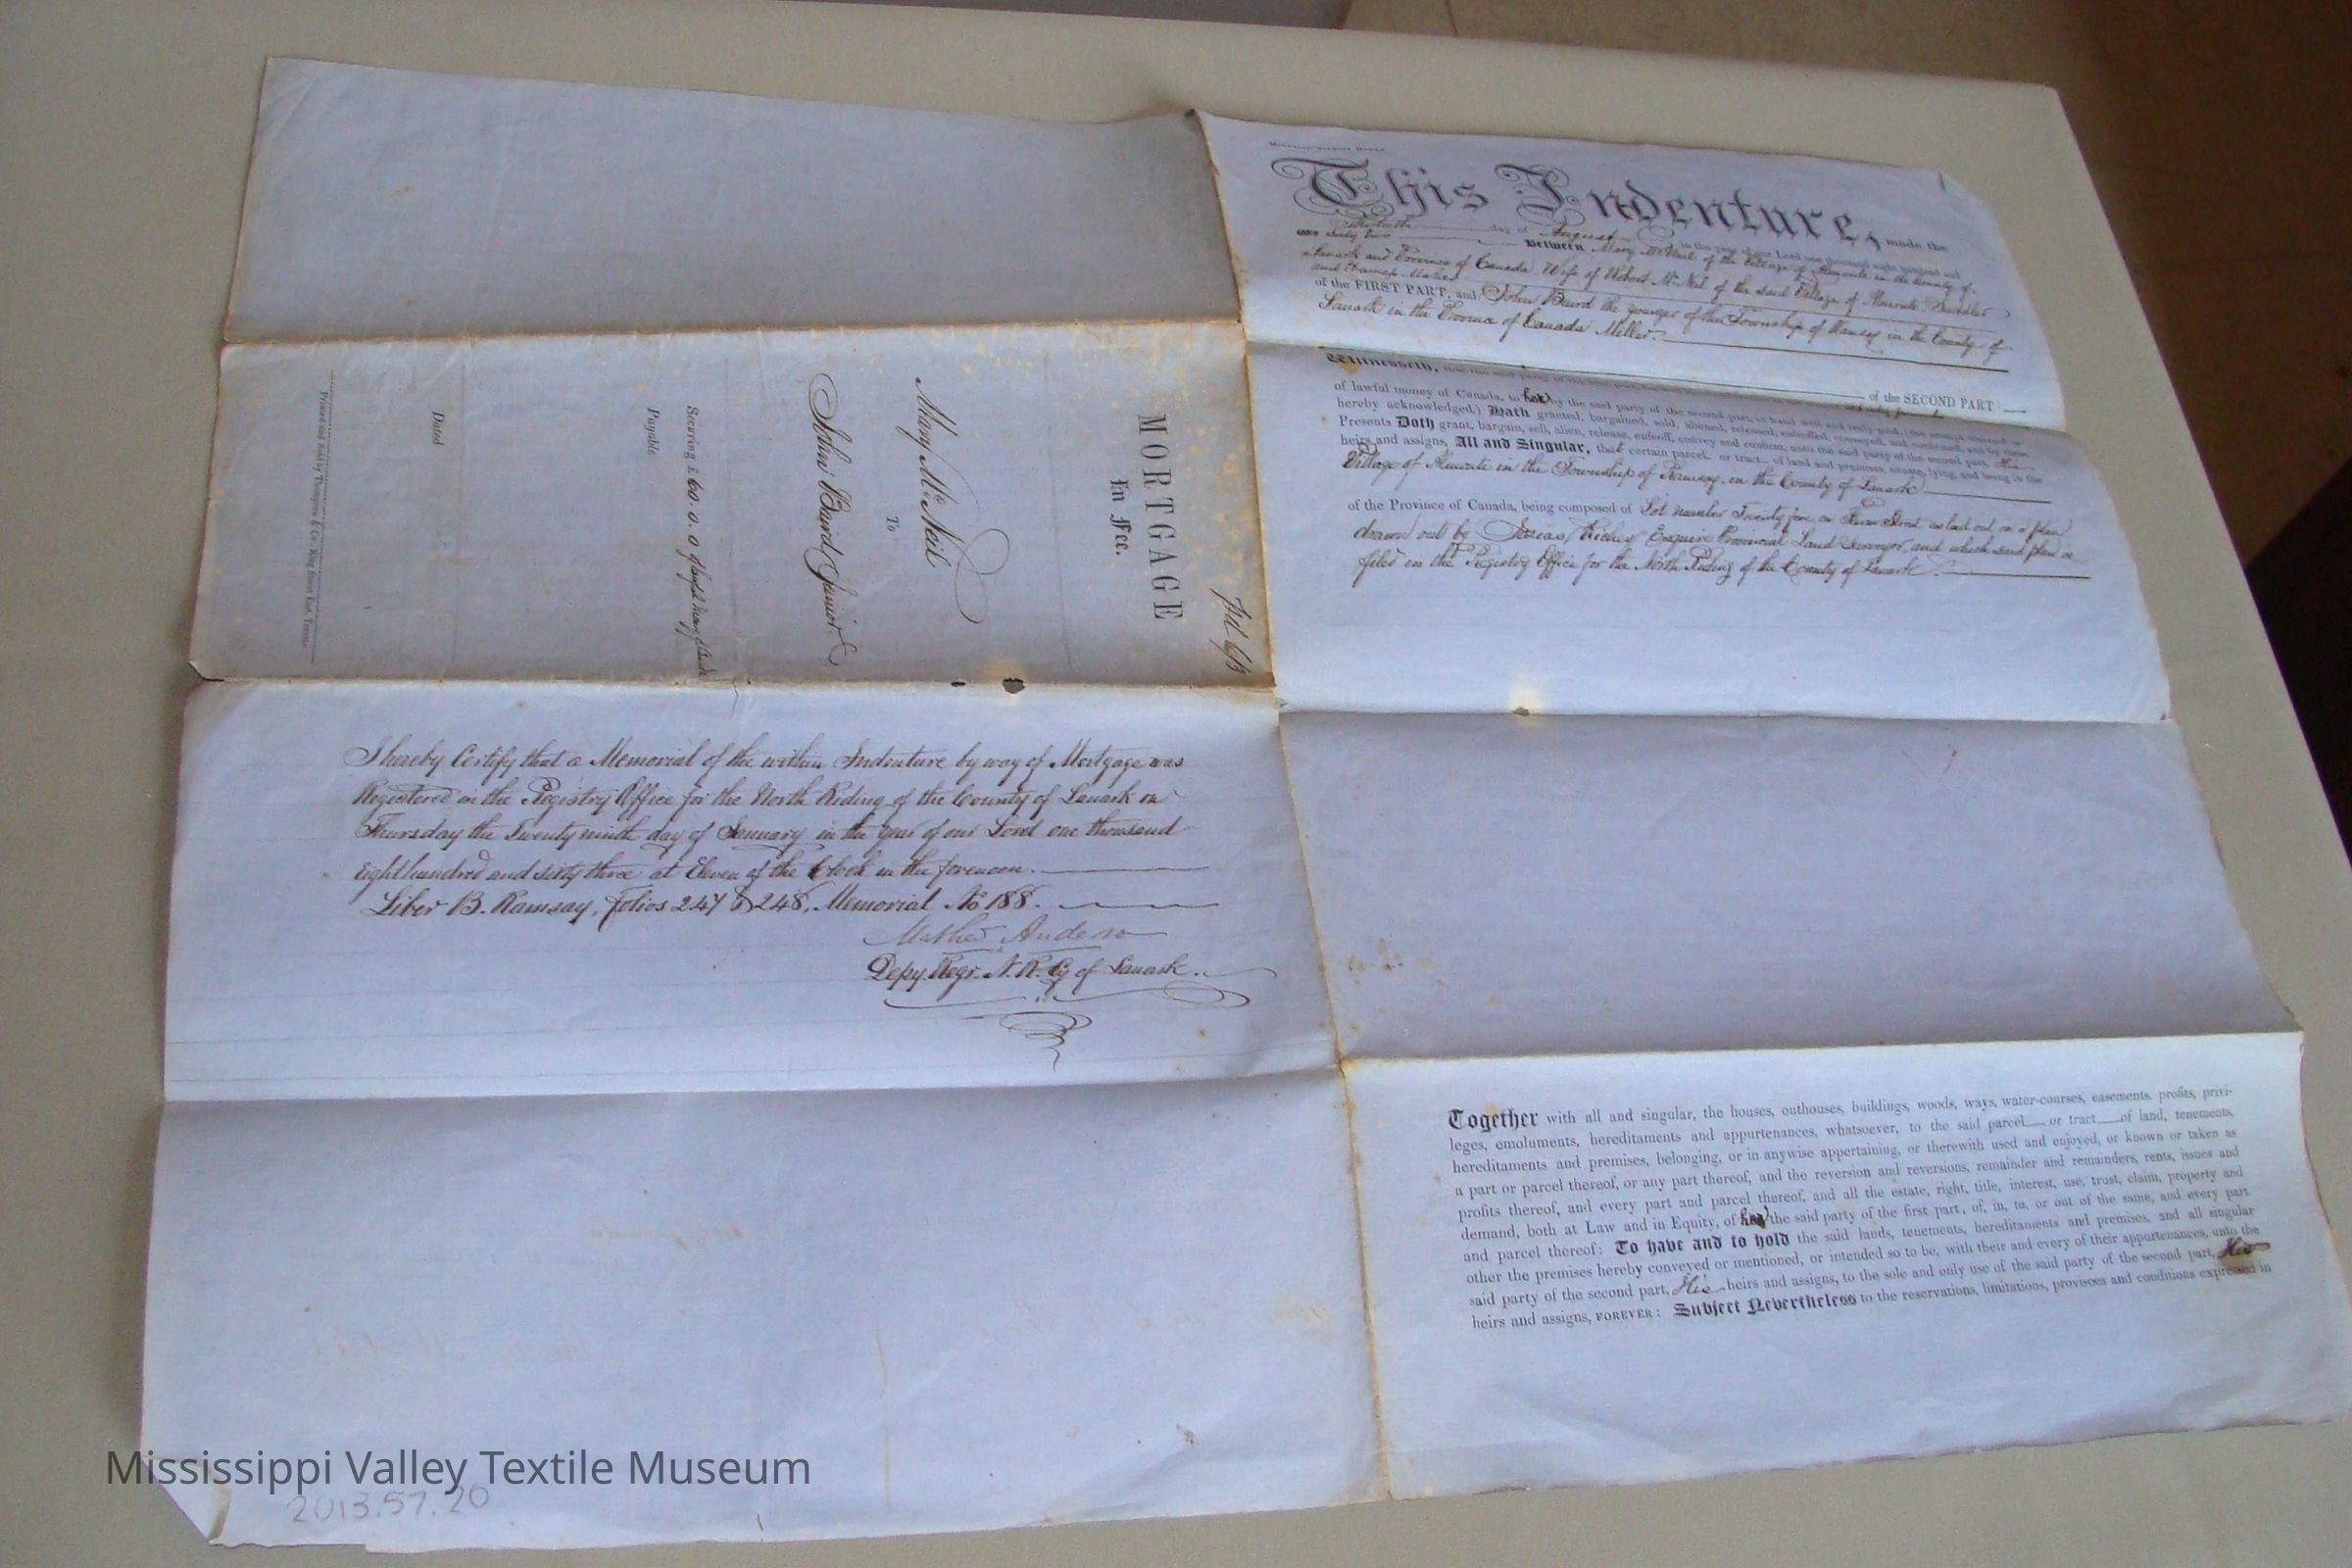 This Indenture, made the
day of August in the year of our Lord one thousand eight hundred and
sixty two Between Mary McNeil of the Village of Almonte in the County of
Lanark and Province of Canada, Wife of Robert McNeil of the said Village of Almonte,
of the FIRST PART, and John Baird the younger of the Township of Ramsay in the County of
Lanark in the Province of Canada Miller.
of the SECOND PART:
Witnesseth, that the said party of the
of lawful money of Canada, to her by the said party of the second part, in hand well and truly paid, (the
hereby acknowledged,) Hath granted, bargained, sold, aliened, released, enfeoffed, conveyed, and confirmed, and by these
Presents Doth grant, bargain, sell, alien, release, enfeoff, convey and confirm, unto the said party of the second part, His
heirs and assigns, All and Singular, that certain parcel or tract of land and premises, situate, lying, and being in the
Village of Almonte in the Township of Ramsay, in the County of Lanark
of the Province of Canada, being composed of Lot number Twenty five on Street as laid out on a plan
drawn out by Josias Richey Esquire Provincial Land Surveyor, and which said plan is
filed in the Registry Office for the North Riding of the County of Lanark.
MORTGAGE
In Fee.
Mary McNeil
To
John Baird Junior
Securing £60. 0. 0 of
Payable
Dated
Printed and Sold by Thompson & Co., King Street East, Toronto
I hereby Certify that a Memorial of the within Indenture by way of Mortgage was
Registered in the Registry Office for the North Riding of the County of Lanark on
Thursday the Twenty ninth day of January in the year of our Lord one thousand
Eight hundred and sixty three at Eleven of the Clock in the forenoon.
Liber B. Ramsay, folios 247 & 248, Memorial No 188.
Anderson
Depy. Regr. N. R. Cy of Lanark.
Together with all and singular, the houses, outhouses, buildings, woods, ways, water-courses, easements, profits, privi-
leges, emoluments, hereditaments and appurtenances, whatsoever, to the said parcel or tract of land, tenements,
hereditaments and premises, belonging, or in anywise appertaining, or therewith used and enjoyed, or known or taken as
a part or parcel thereof, or any part thereof, and the reversion and reversions, remainder and remainders, rents, issues and
profits thereof, and every part and parcel thereof, and all the estate, right, title, interest, use, trust, claim, property and
demand, both at Law and in Equity, of her the said party of the first part, of, in, to, or out of the same, and every part
and parcel thereof: To have and to hold the said lands, tenements, hereditaments and premises, and all singular
other the premises hereby conveyed or mentioned, or intended so to be, with their and every of their appurtenances, unto the
said party of the second part, His heirs and assigns, to the sole and only use of the said party of the second part, His
heirs and assigns, FOREVER: Subject Nevertheless to the reservations, limitations, provisoes and conditions expressed in
Mississippi Valley Textile Museum
2013.57.20